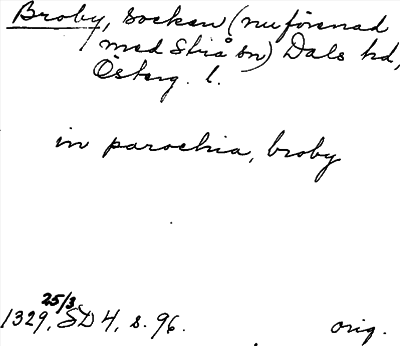 Broby, socken (nu förenad
med Strå sn) Dals hd,
Österg. l.
in parochia, broby
25/3
1329, SD 4, s. 96. orig.